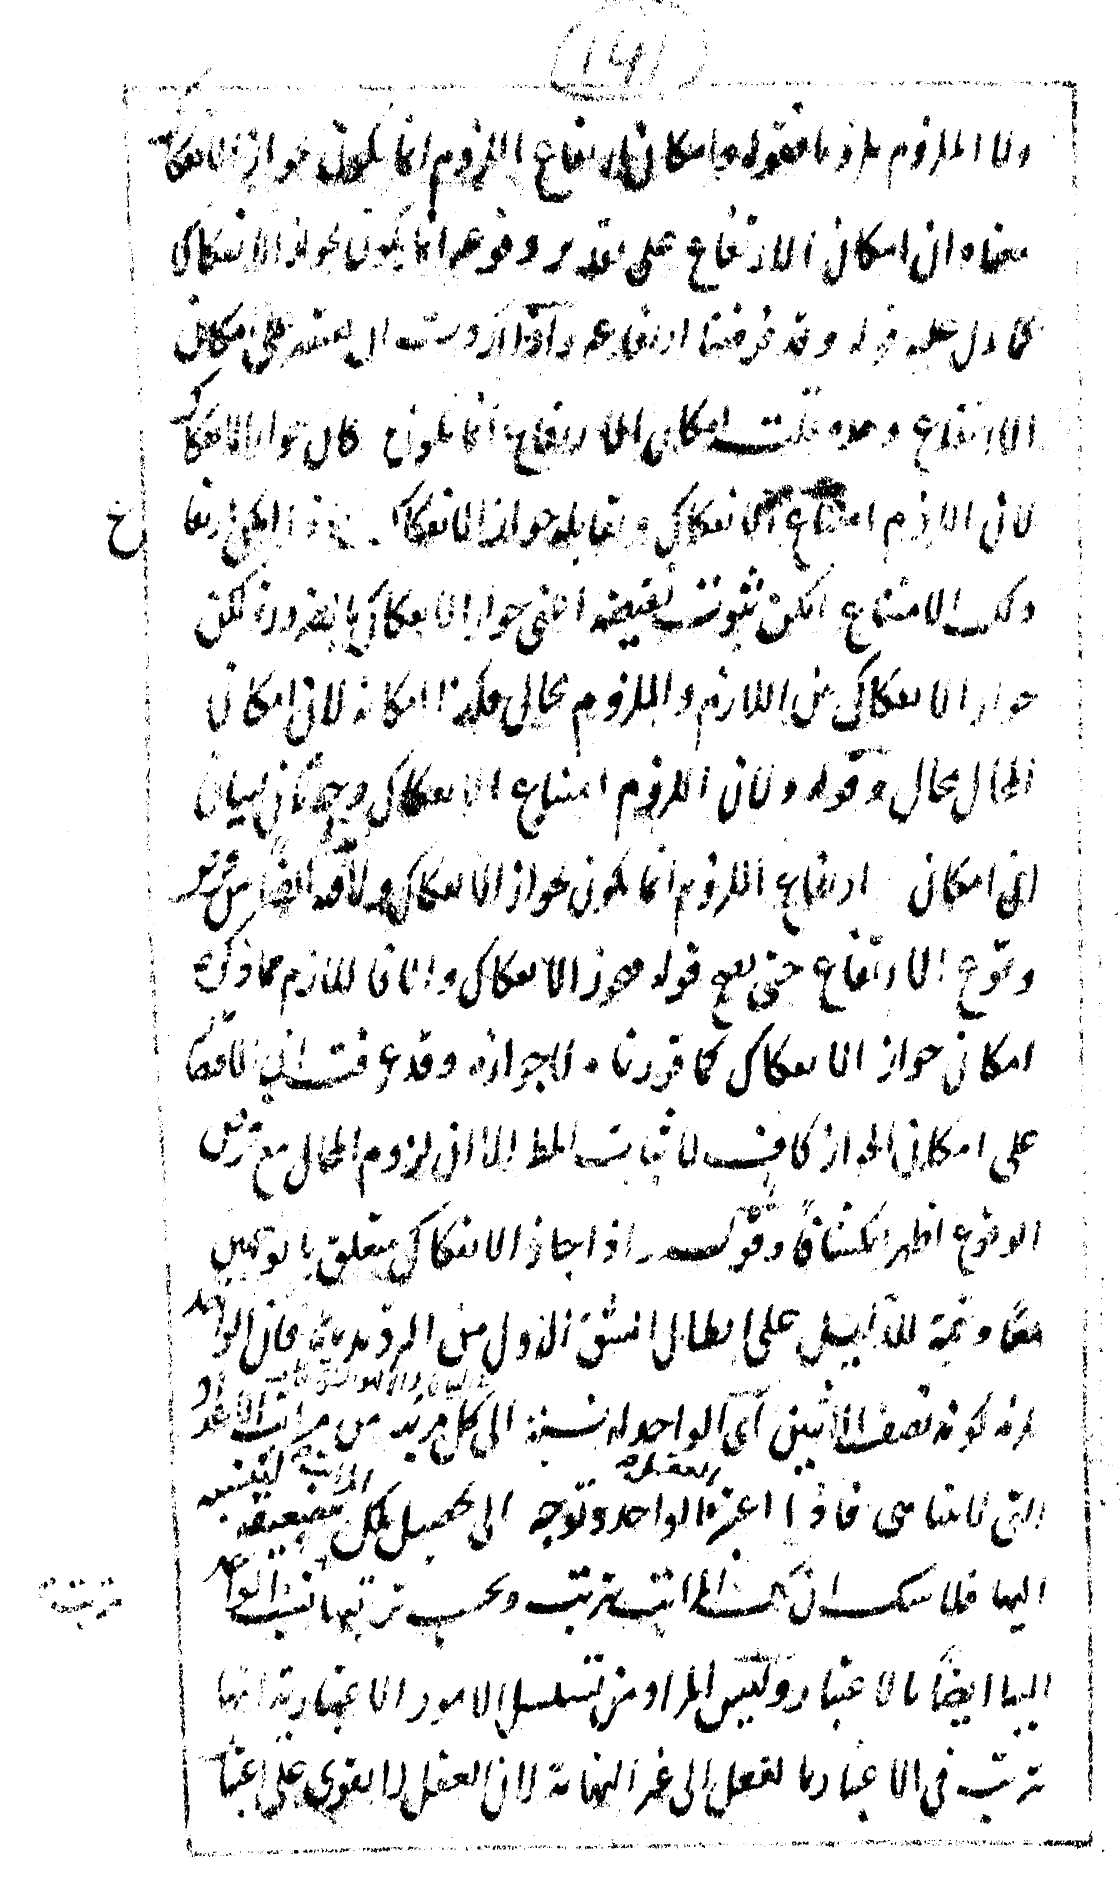 ١٤١
ولا الملزوم ملزوما فقوله وامكان ارتفاع اللزوم انما يكون بجواز الانفكاك
معناه ان امكان الارتفاع على تقدير وقوعه انما يكون بجواز الانفكاك
كما دل عليه قوله وقد فرضنا ارتفاعه واذا اردت ان يقتصر على امكان
الارتفاع وحده قلت امكان الارتفاع انما يكون كان جواز الانفكاك
لان اللازم امتناع الانفكاك ويقابله جواز الانفكاك فاذا امكن ارتفاع
ذلك الامتناع امكن ثبوت نقيضه اعني جواز الانفكاك بالضرورة لكن
جواز الانفكاك بين اللازم والملزوم محال فكذا امكانه لان امكان
المحال محال وقوله ولان اللزوم امتناع الانفكاك وجه ثان لبيان
ان امكان ارتفاع اللزوم انما يكون بجواز الانفكاك ولابد ايضا من فرض
وقوع الارتفاع حتى يصح قوله فيجوز الانفكاك والا فاللازم مما ذكره
امكان جواز الانفكاك كما قررناه لا جوازه وقد عرفت ان الاقتصار
على امكان الجواز كاف لاثبات المط الا ان لزوم المحال مع فرض
الوقوع اظهر انكشافا وقوله اذا جاز الانفكاك متعلق بالوجهين
معا وتتمة للدليل على ابطال الشق الاول من الترديد فان الواحد
يلزمه كونه نصف الاثنين اي الواحد له نسبة الى كل مرتبة من مراتب الاعداد
التي لا تتناهى فاذا اعتبر العقل الواحد وتوجه الى تحصيل تلك المراتب لتضعيفه
اليها فلا شك ان تلك المراتب تترتب وبحسب ترتبها نسب الواحد
اليها ايضا بالاعتبار وليس المراد من تسلسل الامور الاعتبارية انها
تترتب في الاعتبار بالفعل الى غير النهاية لان العقل لا يقوى على اعتبار
خ
تترتب